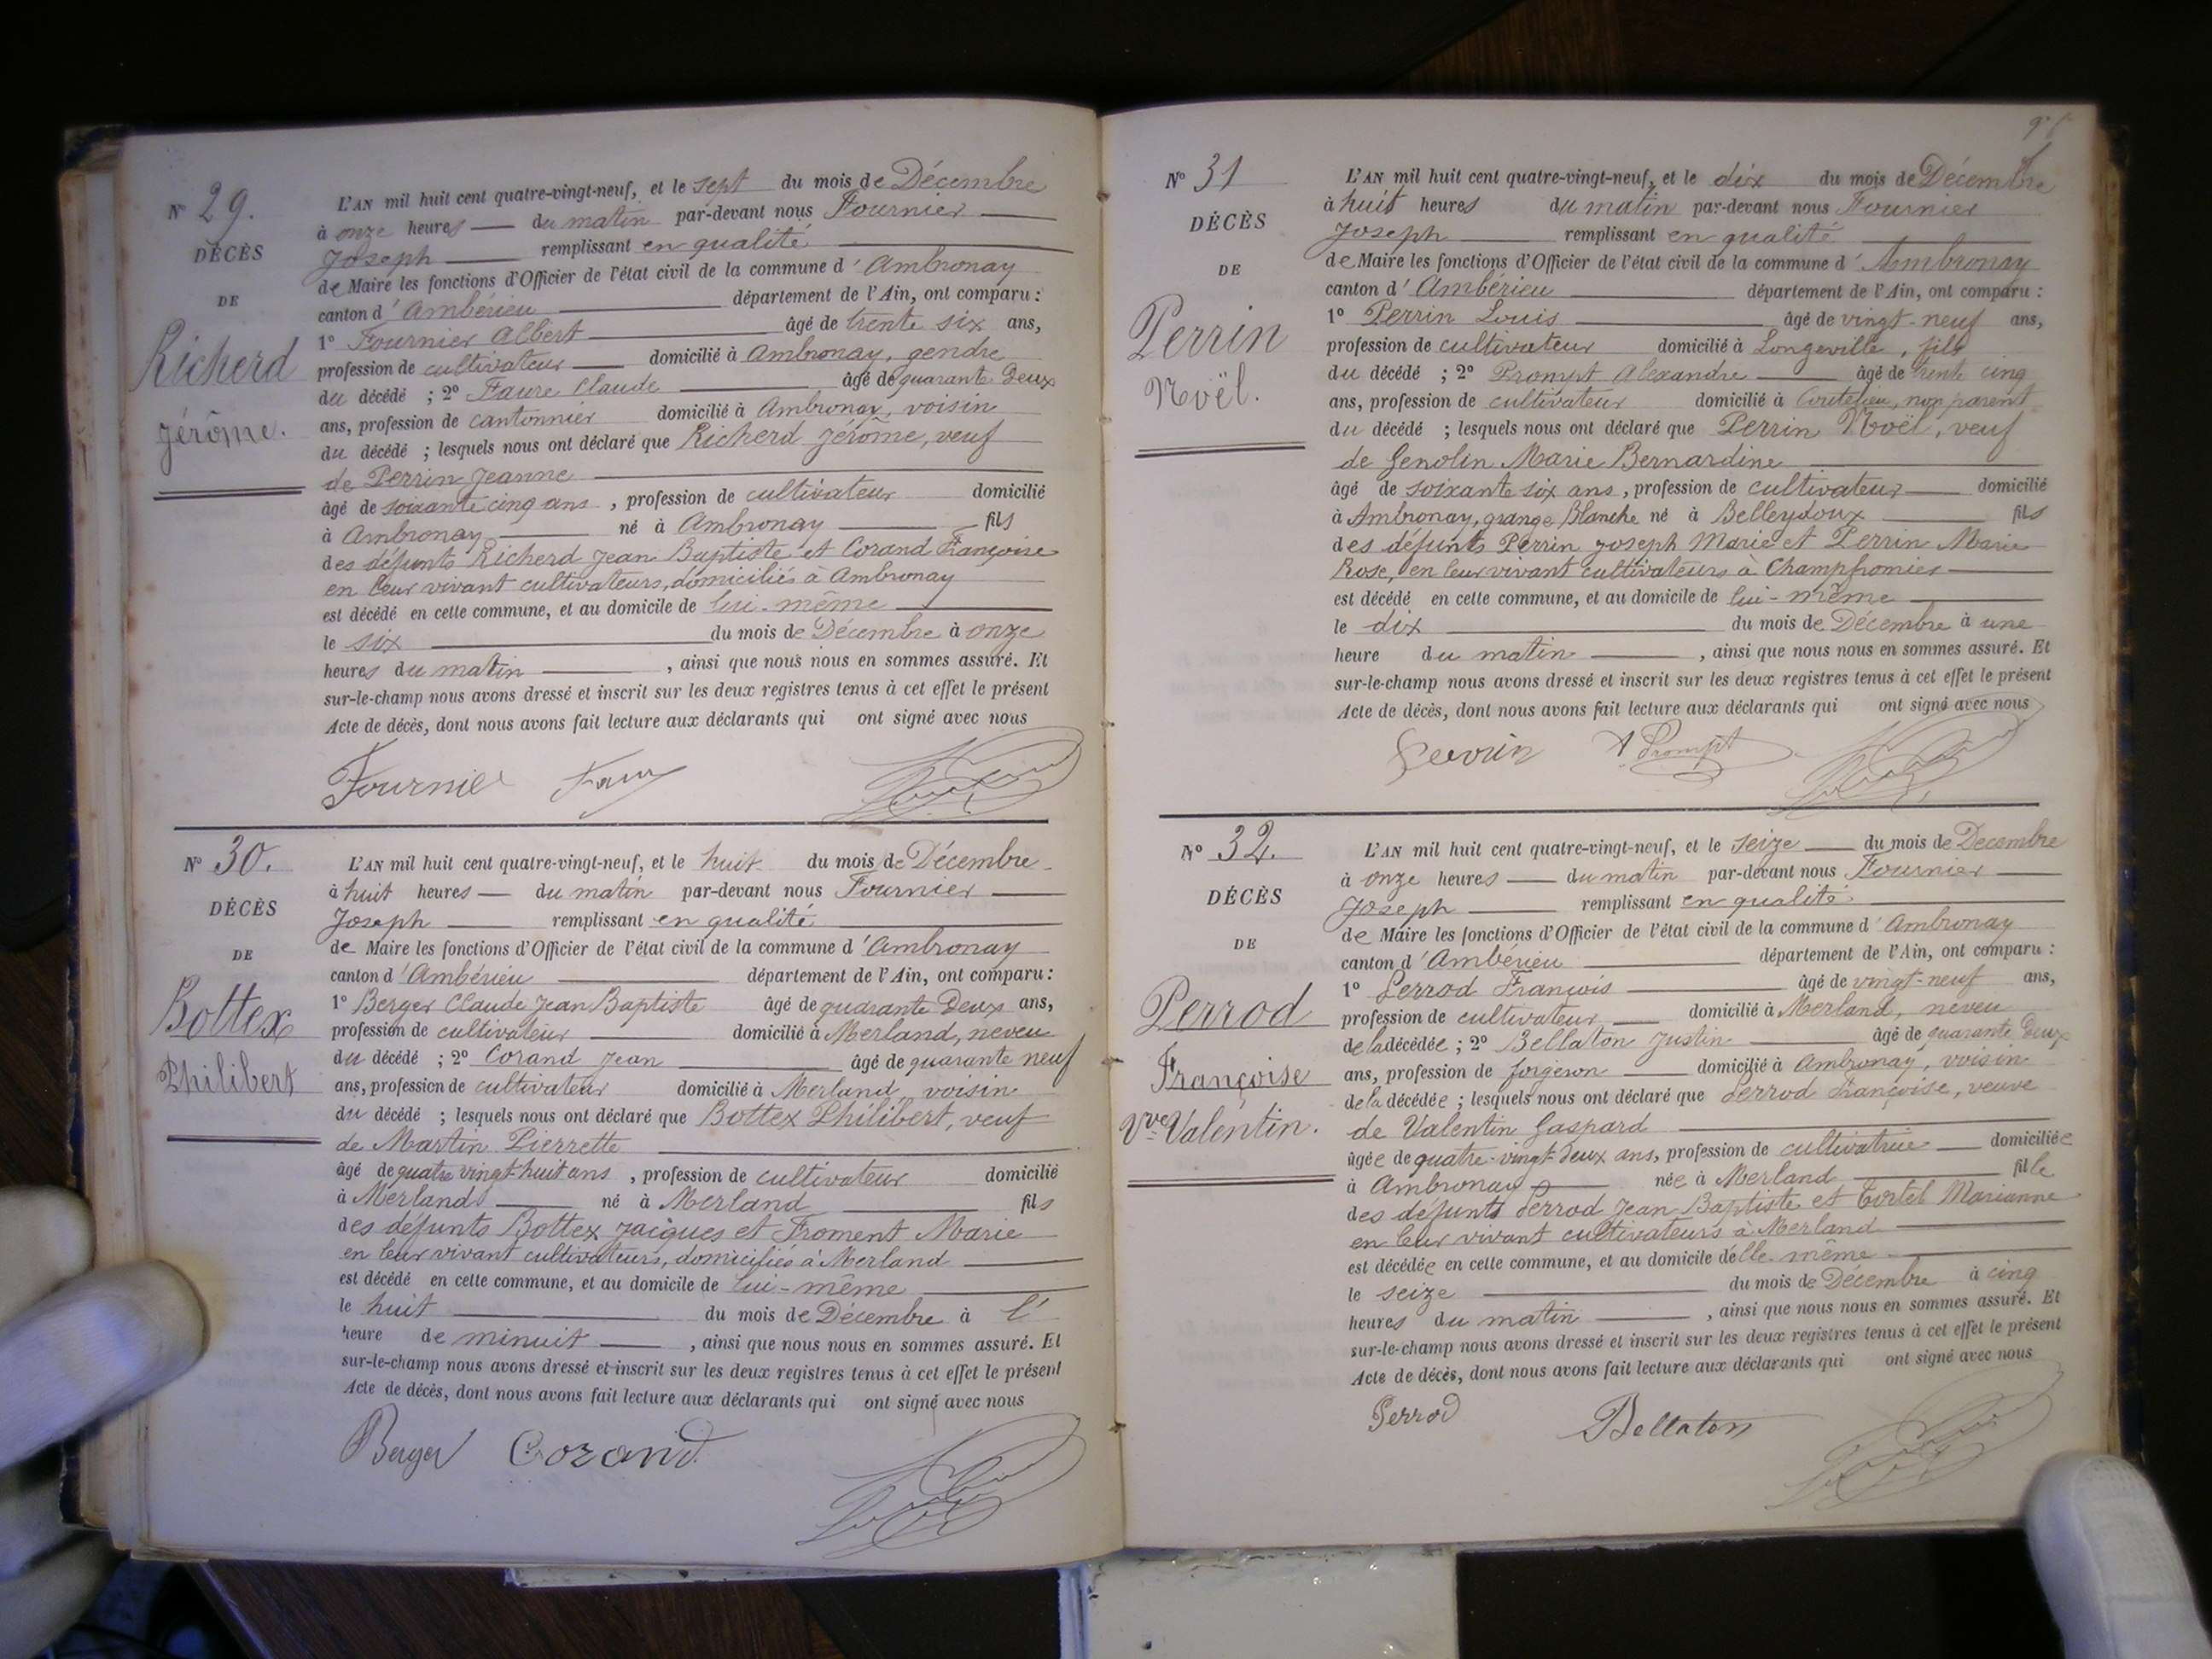 Nº 29.
DÉCÈS
DE
Richerd
Jérôme.
L'AN mil huit cent quatre-vingt-neuf, et le sept du mois de Décembre
à onze heures du matin par-devant nous Fournier
Joseph remplissant en qualité
de Maire les fonctions d'Officier de l'état civil de la commune d'Ambronay
canton d'Ambérieu département de l'Ain, ont comparu :
1º Fournier Albert âgé de trente six ans,
profession de cultivateur domicilié à Ambronay, gendre
du décédé ; 2º Faure Claude âgé de quarante deux
ans, profession de cantonnier domicilié à Ambronay, voisin
du décédé ; lesquels nous ont déclaré que Richerd Jérôme, veuf
de Perrin Jeanne
âgé de soixante cinq ans , profession de cultivateur domicilié
à Ambronay né à Ambronay fils
des défunts Richerd Jean Baptiste et Corand Françoise
en leur vivant cultivateurs, domiciliés à Ambronay
est décédé en cette commune, et au domicile de lui-même
le six du mois de Décembre à onze
heures du matin , ainsi que nous nous en sommes assuré. Et
sur-le-champ nous avons dressé et inscrit sur les deux registres tenus à cet effet le présent
Acte de décès, dont nous avons fait lecture aux déclarants qui ont signé avec nous
Fournier Faure
Nº 30.
DÉCÈS
DE
Bottex
Philibert
L'AN mil huit cent quatre-vingt-neuf, et le huit du mois de Décembre
à huit heures du matin par-devant nous Fournier
Joseph remplissant en qualité
de Maire les fonctions d'Officier de l'état civil de la commune d'Ambronay
canton d'Ambérieu département de l'Ain, ont comparu :
1º Berger Claude Jean Baptiste âgé de quarante Deux ans,
profession de cultivateur domicilié à Merland, neveu
du décédé ; 2º Corand Jean âgé de quarante neuf
ans, profession de cultivateur domicilié à Merland, voisin
du décédé ; lesquels nous ont déclaré que Bottex Philibert, veuf
de Martin Pierrette
âgé de quatre vingt-huit ans , profession de cultivateur domicilié
à Merland né à Merland fils
des défunts Bottex Jacques et Froment Marie
en leur vivant cultivateurs, domiciliés à Merland
est décédé en cette commune, et au domicile de lui-même
le huit du mois de Décembre à l'
heure de minuit , ainsi que nous nous en sommes assuré. Et
sur-le-champ nous avons dressé et inscrit sur les deux registres tenus à cet effet le présent
Acte de décès, dont nous avons fait lecture aux déclarants qui ont signé avec nous
Berger Corand
Nº 31
DÉCÈS
DE
Perrin
Noël.
L'AN mil huit cent quatre-vingt-neuf, et le dix du mois de Décembre
à huit heures du matin par-devant nous Fournier
Joseph remplissant en qualité
de Maire les fonctions d'Officier de l'état civil de la commune d'Ambronay
canton d'Ambérieu département de l'Ain, ont comparu :
1º Perrin Louis âgé de vingt-neuf ans,
profession de cultivateur domicilié à Longeville, fils
du décédé ; 2º Prompt Alexandre âgé de trente cinq
ans, profession de cultivateur domicilié à Coutelieu, non parent
du décédé ; lesquels nous ont déclaré que Perrin Noël, veuf
de Genolin Marie Bernardine
âgé de soixante six ans, profession de cultivateur domicilié
à Ambronay, grange Blanche né à Belleydoux fils
des défunts Perrin Joseph Marie et Perrin Marie
Rose, en leur vivant cultivateurs à Champfromier
est décédé en cette commune, et au domicile de lui-même
le dix du mois de Décembre à une
heure du matin , ainsi que nous nous en sommes assuré. Et
sur-le-champ nous avons dressé et inscrit sur les deux registres tenus à cet effet le présent
Acte de décès, dont nous avons fait lecture aux déclarants qui ont signé avec nous
Perrin A Prompt
Nº 32.
DÉCÈS
DE
Perrod
Françoise
Vve Valentin.
L'AN mil huit cent quatre-vingt-neuf, et le seize du mois de Decembre
à onze heures du matin par-devant nous Fournier
Joseph remplissant en qualité
de Maire les fonctions d'Officier de l'état civil de la commune d'Ambronay
canton d'Ambérieu département de l'Ain, ont comparu :
1º Perrod François âgé de vingt-neuf ans,
profession de cultivateur domicilié à Merland, neveu
de la décédée ; 2º Bellaton Justin âgé de quarante deux
ans, profession de forgeron domicilié à Ambronay, voisin
de la décédée ; lesquels nous ont déclaré que Perrod Françoise, veuve
de Valentin Gaspard
âgée de quatre-vingt-deux ans, profession de cultivatrice domiciliée
à Ambronay née à Merland fille
des défunts Perrod Jean Baptiste et Tortel Marianne
en leur vivant cultivateurs à Merland
est décédée en cette commune, et au domicile d'elle-même
le seize du mois de Décembre à cinq
heures du matin , ainsi que nous nous en sommes assuré. Et
sur-le-champ nous avons dressé et inscrit sur les deux registres tenus à cet effet le présent
Acte de décès, dont nous avons fait lecture aux déclarants qui ont signé avec nous
Perrod Bellaton